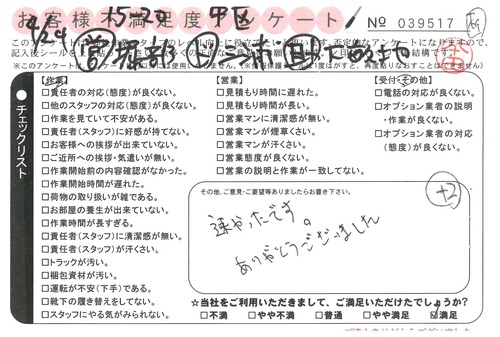 お客様不満足度アンケート
№ 039517
4/29
15-20
甲区
チェックリスト
【作業】
□責任者の対応(態度)が良くない。
□他のスタッフの対応(態度)が良くない。
□作業を見ていて不安がある。
□責任者(スタッフ)に好感が持てない。
□お客様への挨拶が出来ていない。
□ご近所への挨拶・気遣いが無い。
□作業開始前の内容確認がなかった。
□作業開始時間が遅れた。
□荷物の取り扱いが雑である。
□お部屋の養生が出来ていない。
□作業時間が長すぎる。
□責任者(スタッフ)に清潔感が無い。
□責任者(スタッフ)が汗くさい。
□トラックが汚い。
□梱包資材が汚い。
□運転が不安(下手)である。
□靴下の履き替えをしてない。
□スタッフにやる気がみられない。
【営業】
□見積もり時間に遅れた。
□見積もり時間が長い。
□営業マンに清潔感が無い。
□営業マンが煙草くさい。
□営業マンが汗くさい。
□営業態度が良くない。
□営業の説明と作業が一致してない。
【受付・その他】
□電話の対応が良くない。
□オプション業者の説明
・作業が良くない。
□オプション業者の対応
(態度)が良くない。
その他、ご意見・ご要望等ありましたらお書き下さい。
+2
速かったです。
ありがとうございました
☆当社をご利用いただきまして、ご満足いただけたでしょうか?
□不満 □やや不満 □普通 □やや満足 ☑満足